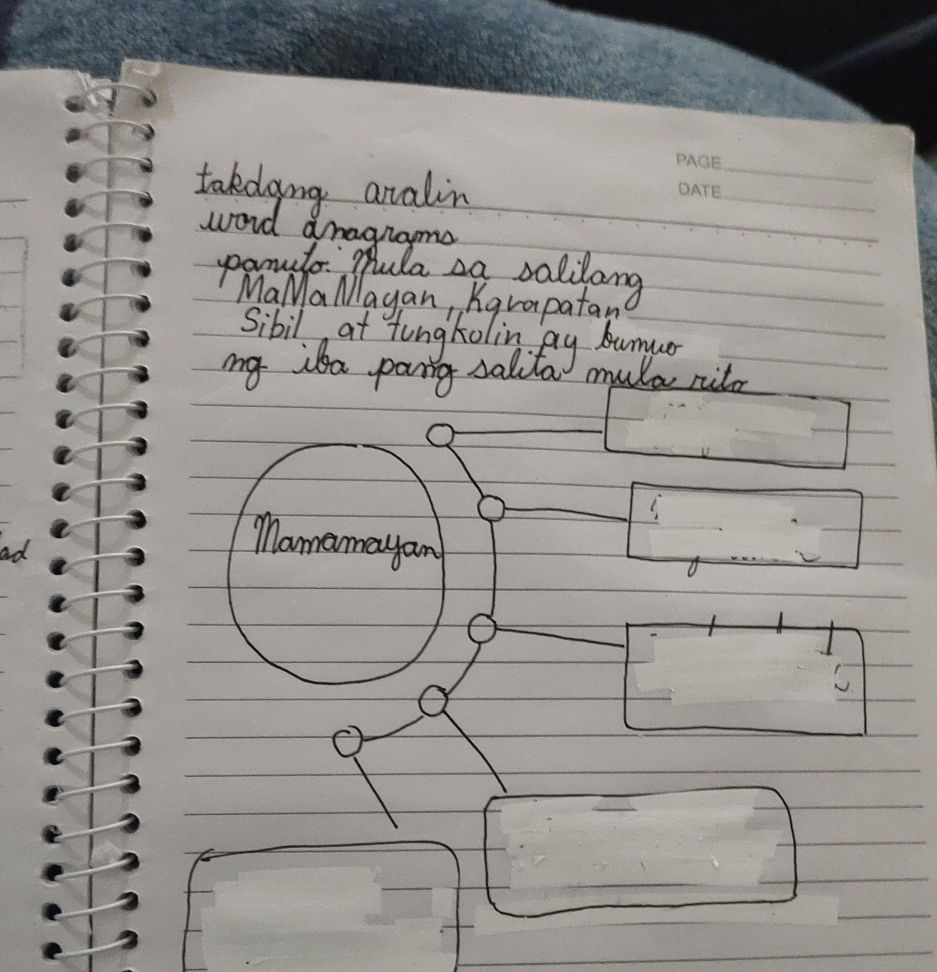 PAGE
DATE
takdang aralin
word anagrams
panuto: Mula sa salitang
MaMaMayan, Karapatan
Sibil at tungkolin ay bumuo
ng iba pang salita mula rito
Mamamayan
ad